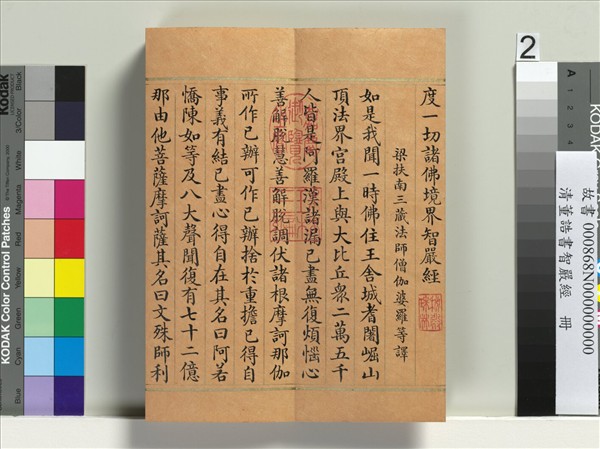 度一切諸佛境界智嚴經
梁扶南三藏法師僧伽婆羅等譯
如是我聞一時佛住王舍城耆闍崛山
頂法界宮殿上與大比丘眾二萬五千
人皆是阿羅漢諸漏已盡無復煩惱心
善解脫慧善解脫調伏諸根摩訶那伽
所作已辦可作已辦捨於重擔已得自
事義有結已盡心得自在其名曰阿若
憍陳如等及八大聲聞復有七十二億
那由他菩薩摩訶薩其名曰文殊師利
故書 000868N000000000
清董誥書智嚴經 冊
2
KODAK Color Control Patches
Kodak
Blue
Cyan
Green
Yellow
Red
Magenta
White
3/Color
Black
A
1
2
3